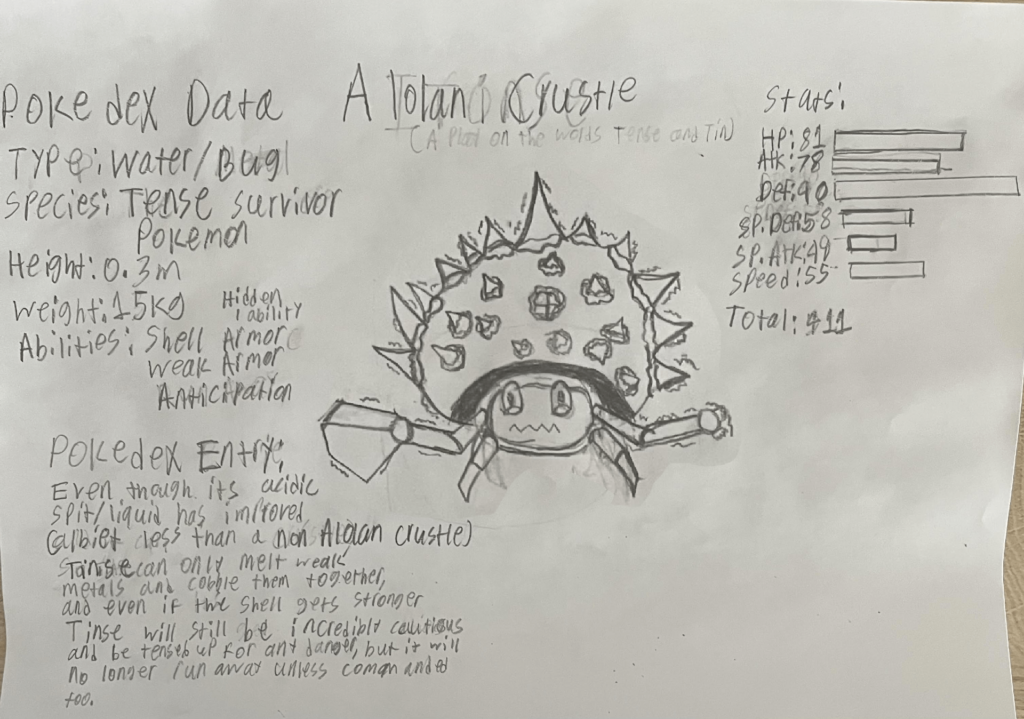 Pokedex Data
Alolan Crustle
(A Play on the words Tense and Tin)
Type: Water/Bug
Species: Tense survivor
Pokemon
Height: 0.3m
Weight: 15kg
Hidden
ability
Abilities: Shell Armor
weak Armor
Anticipation
Stats:
HP: 81
Atk: 78
Def: 90
SP. Def: 58
SP. Atk: 49
Speed: 55
Total: 411
Pokedex Entry:
Even though its acidic
spit/liquid has improved
(albiet less than a non Algan crustle)
Tinse can only melt weak
metals and cobble them together,
and even if the shell gets stronger
Tinse will still be incredibly cautious
and be tensed up for any danger, but it will
no longer run away unless comanded
too.